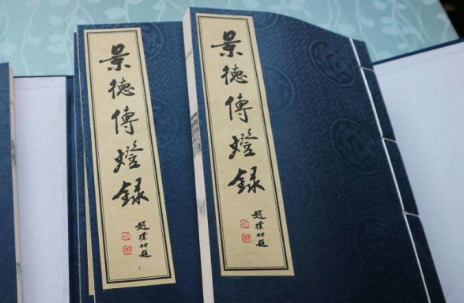 景德傳燈錄
趙樸初題
景德傳燈錄
趙樸初題